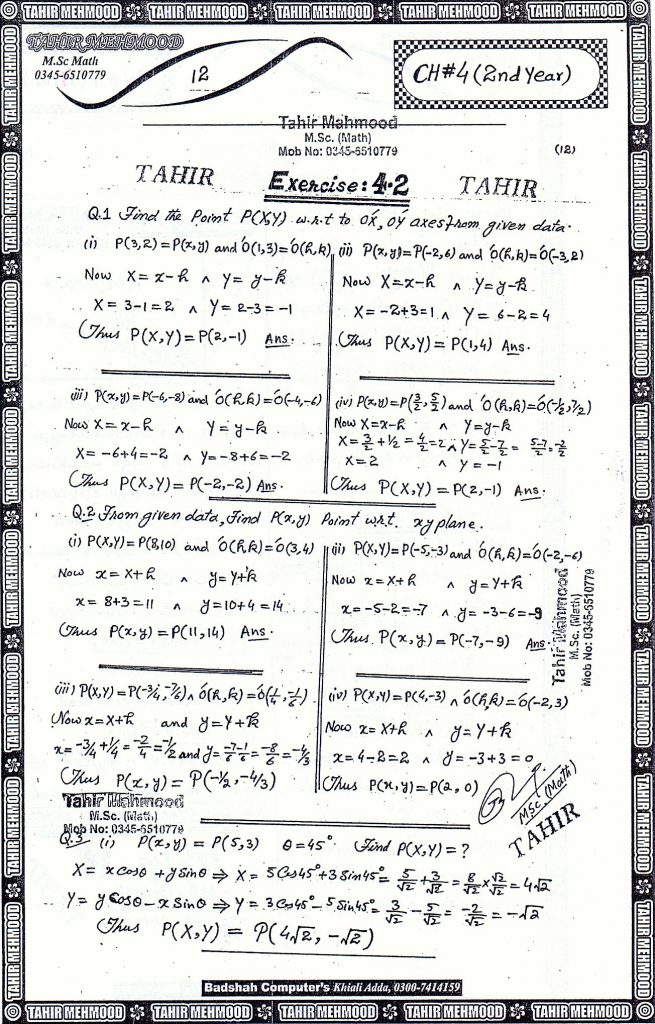 TAHIR MEHMOOD TAHIR MEHMOOD TAHIR MEHMOOD TAHIR MEHMOOD TAHIR MEHMOOD
TAHIR MEHMOOD
M.Sc Math
0345-6510779
12
CH#4 (2nd Year)
Tahir Mahmood
M.Sc. (Math)
Mob No: 0345-6510779
(12)
TAHIR Exercise: 4.2 TAHIR
Q.1 Find the Point P(X,Y) w.r.t to OX, OY axes from given data.
(i) P(3,2) = P(x,y) and O'(1,3) = O'(h,k)
Now X = x-h ∧ Y = y-k
X = 3-1 = 2 ∧ Y = 2-3 = -1
Thus P(X,Y) = P(2,-1) Ans.
(ii) P(x,y) = P(-2,6) and O'(h,k) = O'(-3,2)
Now X = x-h ∧ Y = y-k
X = -2+3 = 1 ∧ Y = 6-2 = 4
Thus P(X,Y) = P(1,4) Ans.
(iii) P(x,y) = P(-6,-8) and O'(h,k) = O'(-4,-6)
Now X = x-h ∧ Y = y-k
X = -6+4 = -2 ∧ Y = -8+6 = -2
Thus P(X,Y) = P(-2,-2) Ans.
(iv) P(x,y) = P(3/2, 5/2) and O'(h,k) = O'(-1/2, 7/2)
Now X = x-h ∧ Y = y-k
X = 3/2 + 1/2 = 4/2 = 2 ∧ Y = 5/2 - 7/2 = 5-7/2 = -2/2
X = 2 ∧ Y = -1
Thus P(X,Y) = P(2,-1) Ans.
Q.2 From given data, Find P(x,y) Point w.r.t. xy plane.
(i) P(X,Y) = P(8,10) and O'(h,k) = O'(3,4)
Now x = X+h ∧ y = Y+k
x = 8+3 = 11 ∧ y = 10+4 = 14
Thus P(x,y) = P(11,14) Ans.
(ii) P(X,Y) = P(-5,-3) and O'(h,k) = O'(-2,-6)
Now x = X+h ∧ y = Y+k
x = -5-2 = -7 ∧ y = -3-6 = -9
Thus P(x,y) = P(-7,-9) Ans.
Tahir Mahmood
M.Sc. (Math)
Mob No: 0345-6510779
(iii) P(X,Y) = P(-3/4, -7/6) ∧ O'(h,k) = O'(1/4, -1/6)
Now x = X+h and y = Y+k
x = -3/4 + 1/4 = -2/4 = -1/2 and y = -7-1/6 = -8/6 = -4/3
Thus P(x,y) = P(-1/2, -4/3)
(iv) P(X,Y) = P(4,-3) ∧ O'(h,k) = O'(-2,3)
Now x = X+h ∧ y = Y+k
x = 4-2 = 2 ∧ y = -3+3 = 0
Thus P(x,y) = P(2,0)
MSc (Math)
TAHIR
Tahir Mahmood
M.Sc. (Math)
Mob No: 0345-6510779
Q.3 (i) P(x,y) = P(5,3) θ = 45° Find P(X,Y) = ?
X = x cosθ + y sinθ ⇒ X = 5 Cos45° + 3 Sin45° = 5/√2 + 3/√2 = 8/√2 × √2/√2 = 4√2
Y = y Cosθ - x Sinθ ⇒ Y = 3 Cos45° - 5 Sin45° = 3/√2 - 5/√2 = -2/√2 = -√2
Thus P(X,Y) = P(4√2, -√2)
Badshah Computer's Khiali Adda, 0300-7414159
TAHIR MEHMOOD TAHIR MEHMOOD TAHIR MEHMOOD TAHIR MEHMOOD TAHIR MEHMOOD
TAHIR MEHMOOD TAHIR MEHMOOD TAHIR MEHMOOD TAHIR MEHMOOD TAHIR MEHMOOD TAHIR MEHMOOD TAHIR MEHMOOD TAHIR MEHMOOD
TAHIR MEHMOOD TAHIR MEHMOOD TAHIR MEHMOOD TAHIR MEHMOOD TAHIR MEHMOOD TAHIR MEHMOOD TAHIR MEHMOOD TAHIR MEHMOOD